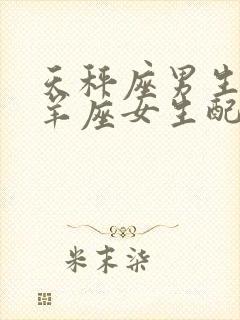 天秤座男生
羊座女生配
米末柒